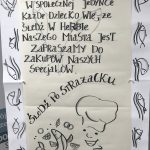 W SPOŁECZNEJ JEDYNCE
KAŻDE DZIECKO WIE, ŻE
ŚLEDŹ W HERBIE
NASZEGO MIASTA JEST
ZAPRASZAMY DO
ZAKUPÓW NASZYCH
SPECJAŁÓW
ŚLEDŹ PO STRAŻACKU